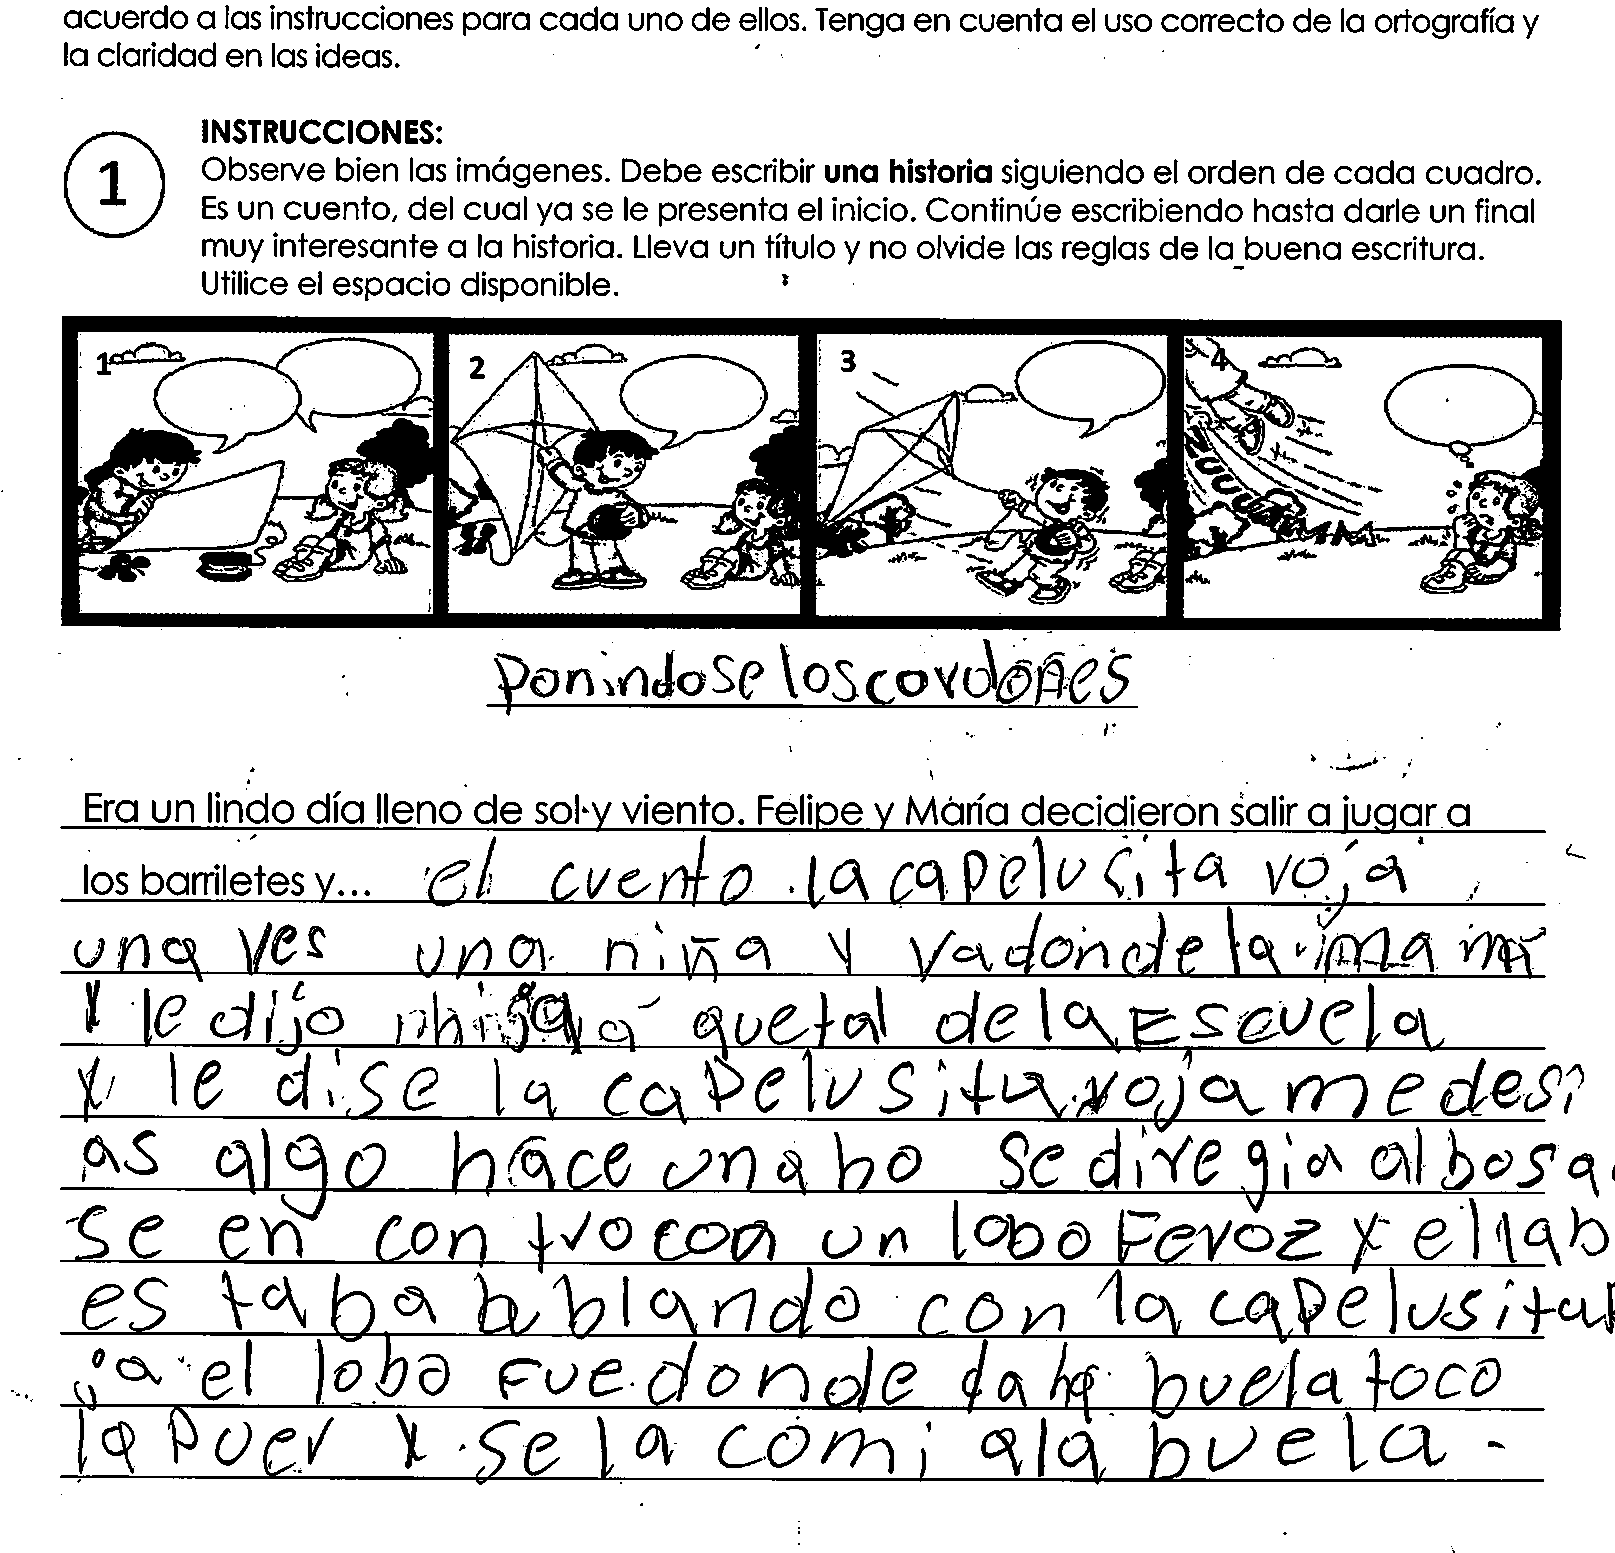 acuerdo a las instrucciones para cada uno de ellos. Tenga en cuenta el uso correcto de la ortografía y
la claridad en las ideas.
1
INSTRUCCIONES:
Observe bien las imágenes. Debe escribir una historia siguiendo el orden de cada cuadro.
Es un cuento, del cual ya se le presenta el inicio. Continúe escribiendo hasta darle un final
muy interesante a la historia. Lleva un título y no olvide las reglas de la buena escritura.
Utilice el espacio disponible.
1 2 3 4
ponindose los cordones
Era un lindo día lleno de sol y viento. Felipe y María decidieron salir a jugar a
los barriletes y... el cuento la capelusita roja
una ves una niña y va donde la mama
y le dijo que tal de la Escuela
y le dise la capelusita roja me desi
as algo hace una ho se diregia al bosq
se en contro con un lobo Feroz y el lab
es taba blando con la capelusita
ja el lobo Fue donde buela toco
la puer y se la comi ala buela